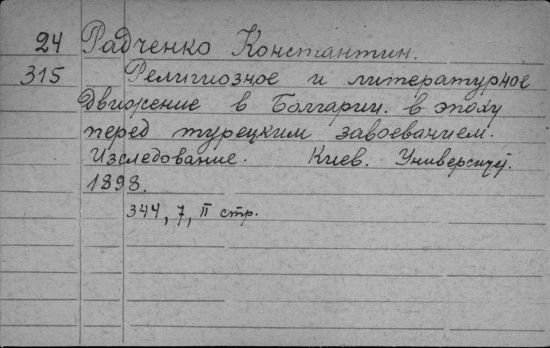 24 Радченко Константин.
315 Религиозное и литературное
движение в Болгарии. в эпоху
перед турецким завоеванием.
Изследование. Киев. Университ.
1898.
344, 7, II стр.